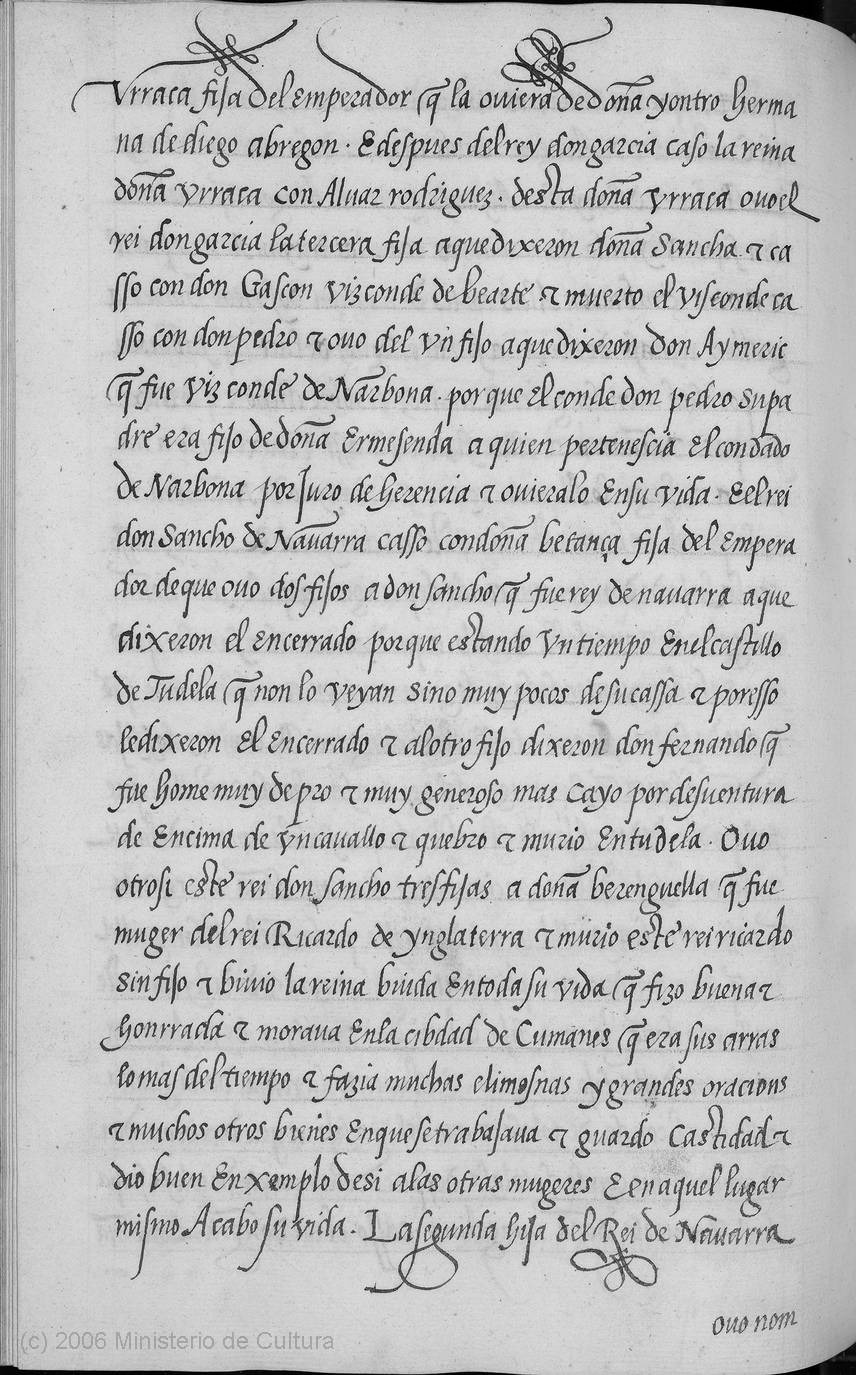 Vrraca fija del emperador q̃ la ouiera de doña yontro herma
na de diego abregon · E despues del rey don garcia caso la reina
doña vrraca con Aluar rodriguez · desta doña vrraca ouo el
rei don garcia la tercera fija a que dixeron doña Sancha · τ ca
sso con don Gascon vizconde de bearte τ muerto el visconde ca
sso con don pedro τ ouo del vn fijo a que dixeron Don Aymeric
q̃ fue vizconde de Narbona · por que El conde don pedro su pa
dre era fijo de doña Ermesenda a quien pertenescia El condado
de Narbona por Juro de herencia τ ouieralo En su vida · E el rei
don Sancho de Nauarra casso con doña betança fija del Empera
dor de que ouo dos fijos a don sancho q̃ fue rey de nauarra a que
dixeron el Encerrado porque estando vn tiempo En el castillo
de Tudela q̃ non lo veyan sino muy pocos de su cassa τ por esso
le dixeron El Encerrado τ al otro fijo dixeron don fernando q̃
fue home muy de pro τ muy generoso mas cayo por desuentura
de Encima de vn cauallo τ quebro τ murio En tudela · Ouo
otrosi este rei don sancho tres fijas a doña berenguella q̃ fue
muger del rei Ricardo de ynglaterra τ murio este rei ricardo
sin fijo τ biuio la reina biuda En toda su vida q̃ fizo buena τ
honrrada τ moraua En la cibdad de Cumanes q̃ era sus arras
lo mas del tiempo τ fazia muchas elimosnas y grandes oracions
τ muchos otros bienes En que se trabajaua τ guardo Castidad τ
dio buen Enxemplo de si a las otras mugeres E en aquel lugar
mismo Acabo su vida · La segunda hija del Rei de Nauarra
ouo nom
(c) 2006 Ministerio de Cultura